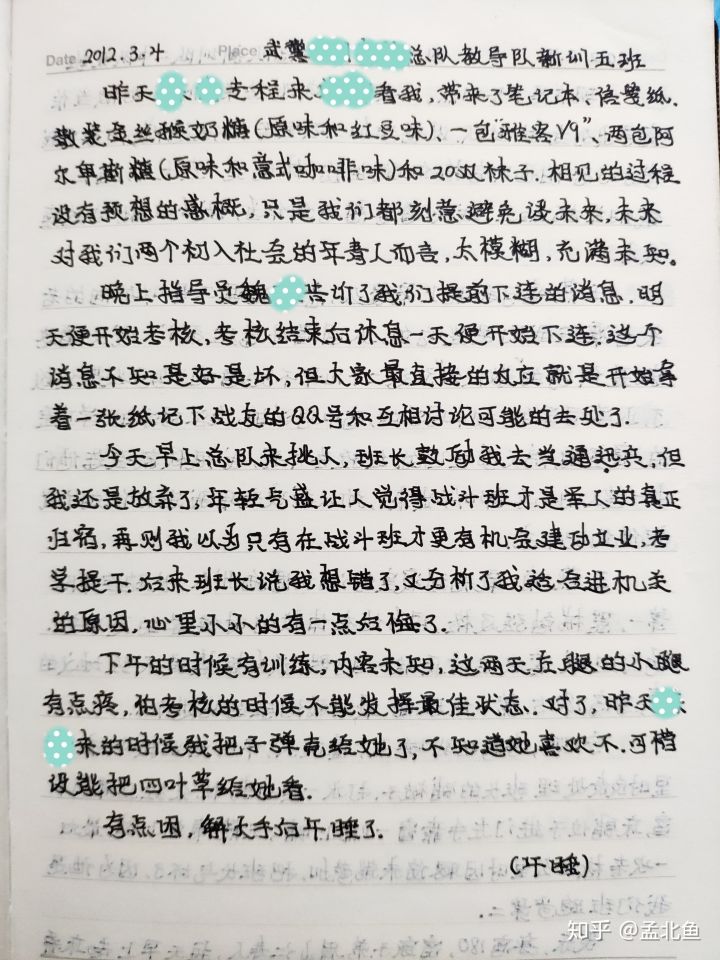 Date 2012.3.4 Place 武警 总队教导队新训五班
昨天 专程来 看我,带来了笔记本、信签纸、
散装金丝猴奶糖(原味和红豆味)、一包“雅客V9”、两包阿
尔卑斯糖(原味和意式咖啡味)和20双袜子.相见的过程
没有预想的感慨,只是我们都刻意避免谈未来,未来
对我们两个初入社会的年青人而言,太模糊,充满未知。
晚上指导员魏 告诉了我们提前下连的消息.明
天便开始考核,考核结束后休息一天便开始下连.这个
消息不知是好是坏,但大家最直接的反应就是开始拿
着一张纸记下战友的QQ号和互相讨论可能的去处了.
今天早上总队来挑人,班长鼓励我去当通讯兵,但
我还是放弃了,年轻气盛让人觉得战斗班才是军人的真正
归宿,再则我以为只有在战斗班才更有机会建功立业,考
学提干.后来班长说我想错了,又分析了我适合进机关
的原因,心里小小的有一点后悔了.
下午的时候有训练,内容未知,这两天左腿的小腿
有点疼,怕考核的时候不能发挥最佳状态.对了,昨天
来的时候我把子弹壳给她了,不知道她喜欢不.可惜
没能把四叶草给她看.
有点困,解大手后午睡了.
(午睡)
知乎 @孟北鱼